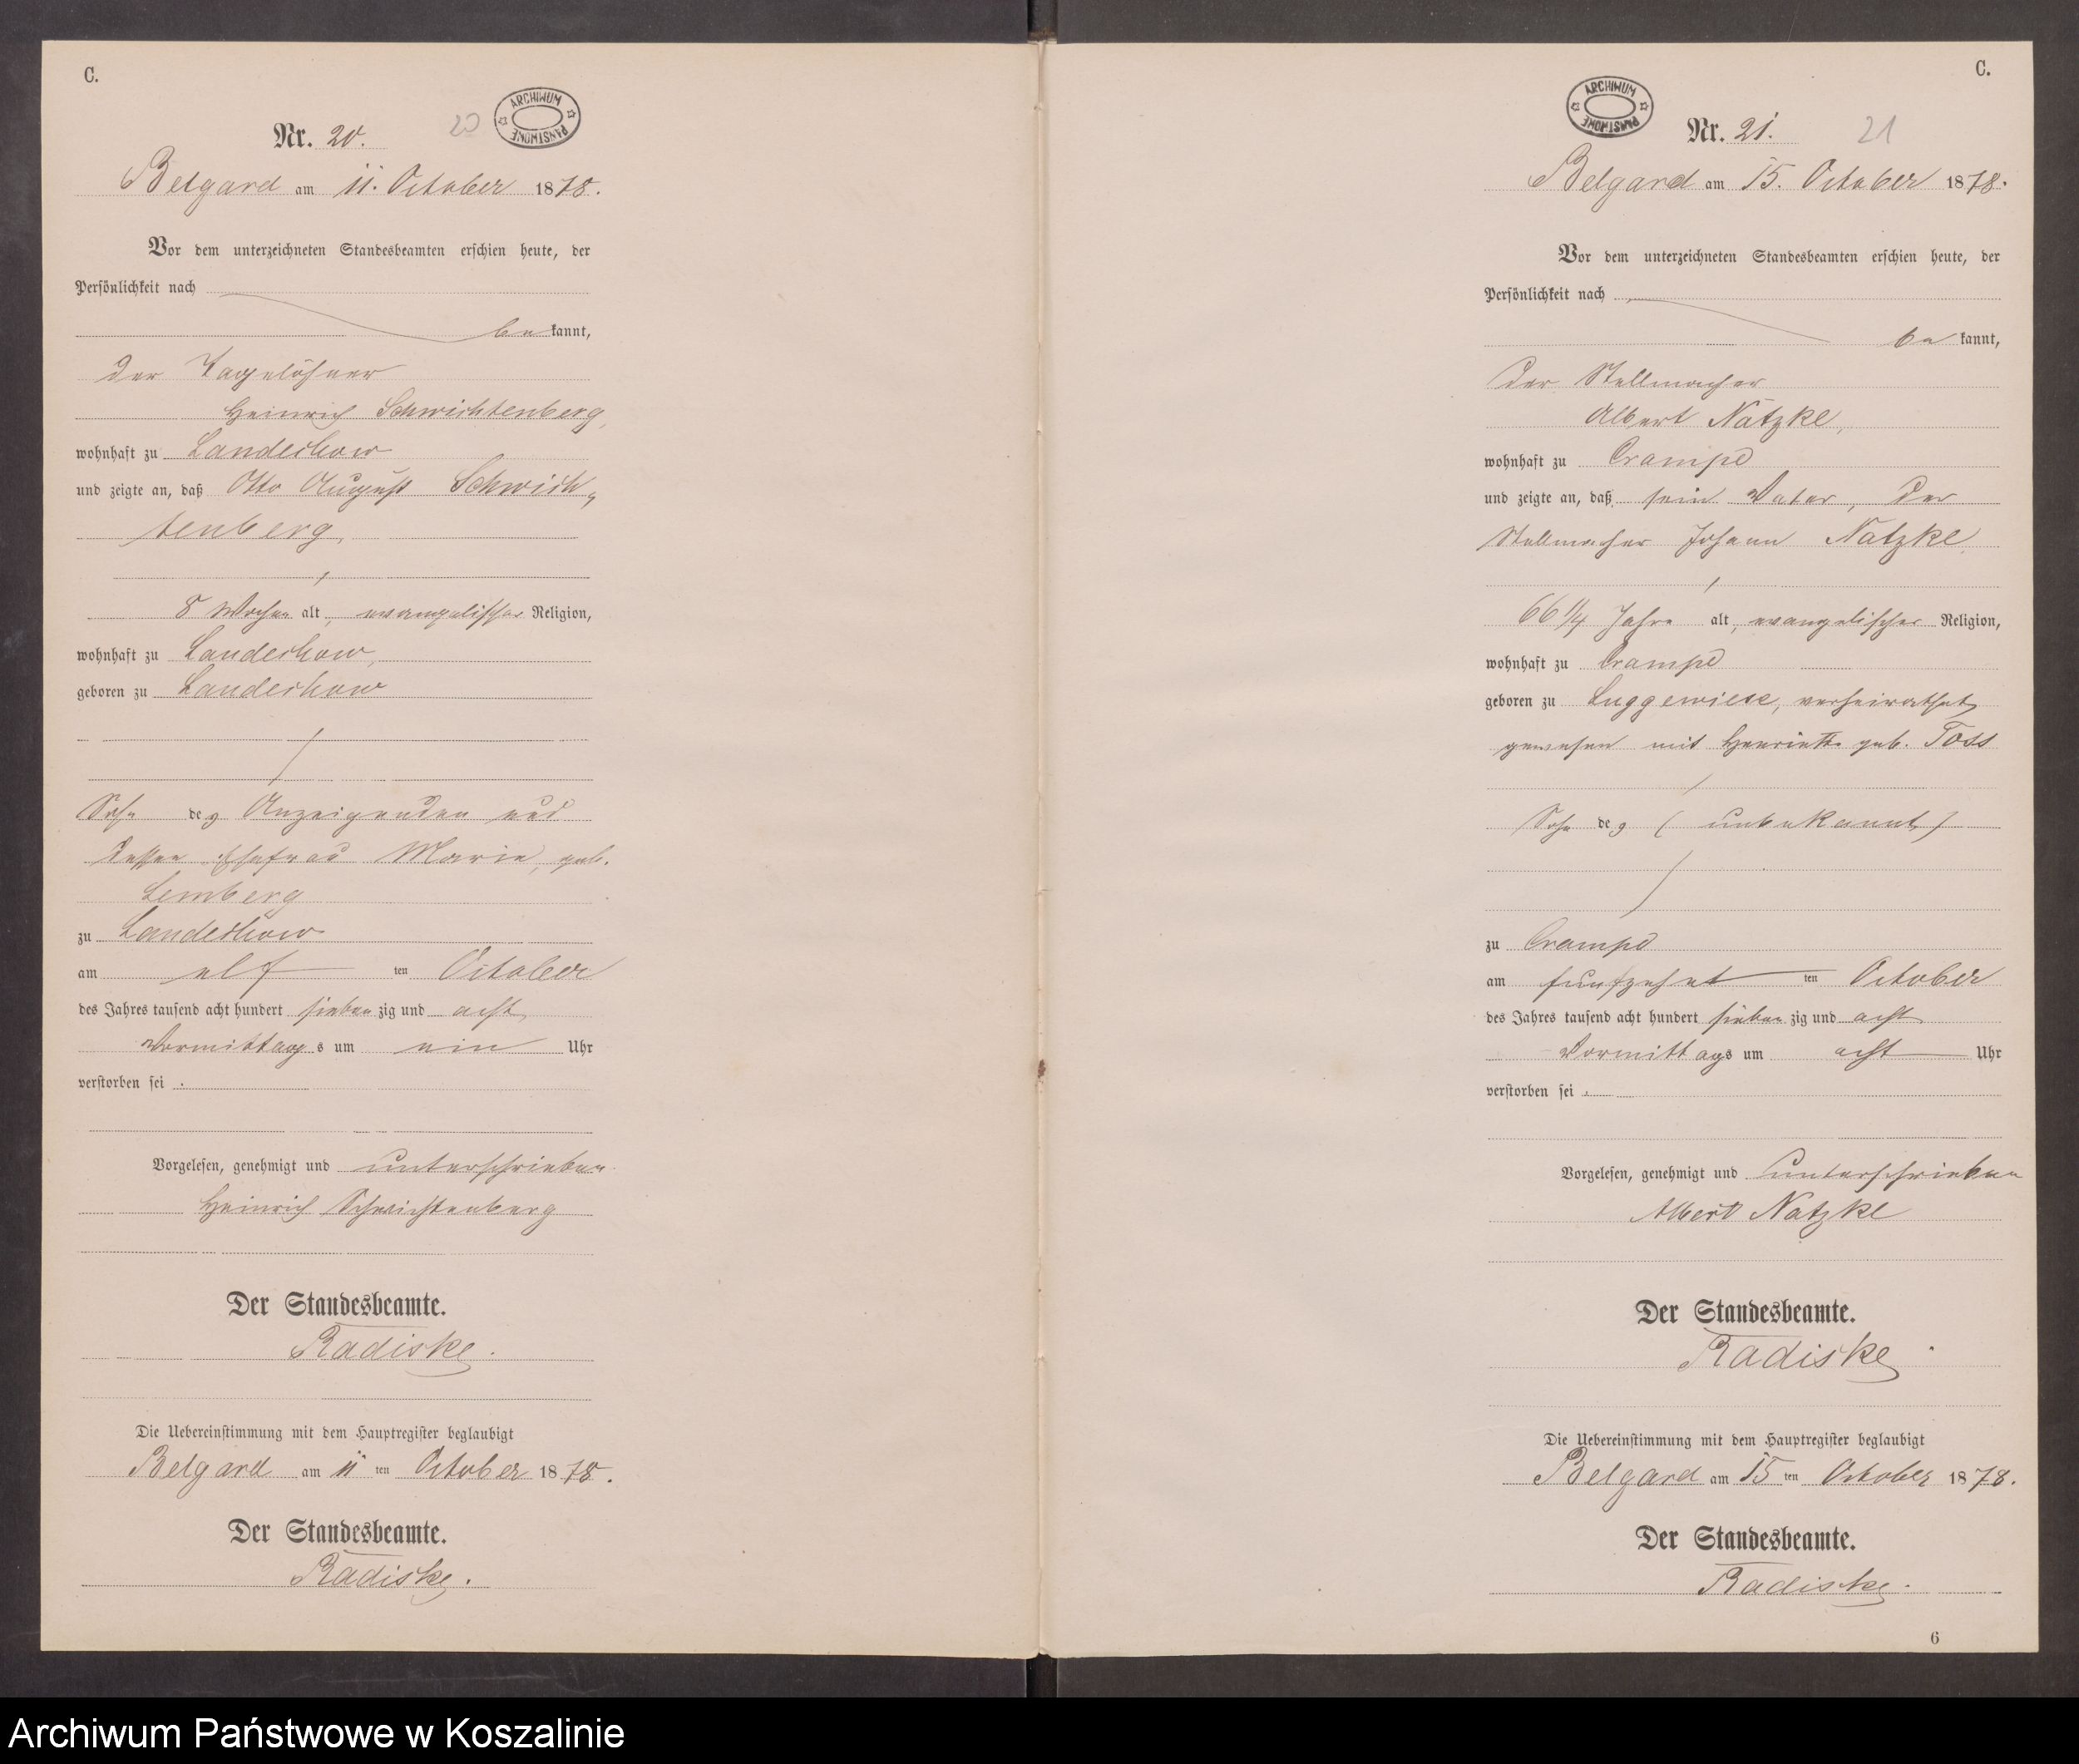 C.
Nr. 20.
20
ARCHIWUM PAŃSTWOWE
Belgard am 11. October 1878.
Vor dem unterzeichneten Standesbeamten erschien heute, der
Persönlichkeit nach
bekannt,
der Tagelöhner
Heinrich Schwichtenberg,
wohnhaft zu Landechow
und zeigte an, daß Otto August Schwich-
tenberg,
8 Wochen alt, evangelischer Religion,
wohnhaft zu Landechow,
geboren zu Landechow
Sohn des Anzeigenden und
dessen Ehefrau Marie, geb.
Lemberg
zu Landechow
am elf ten October
des Jahres tausend acht hundert siebenzig und acht
Vormittags um ein Uhr
verstorben sei.
Vorgelesen, genehmigt und unterschrieben
Heinrich Schwichtenberg
Der Standesbeamte.
Radiske.
Die Uebereinstimmung mit dem Hauptregister beglaubigt
Belgard am 11 ten October 1878.
Der Standesbeamte.
Radiske.
C.
ARCHIWUM PAŃSTWOWE
Nr. 21.
21
Belgard am 15. October 1878.
Vor dem unterzeichneten Standesbeamten erschien heute, der
Persönlichkeit nach
bekannt,
der Stellmacher
Albert Natzke,
wohnhaft zu Crampe
und zeigte an, daß sein Vater, der
Stellmacher Johann Natzke
66 1/4 Jahre alt, evangelischer Religion,
wohnhaft zu Crampe
geboren zu Luggewiese, verheirathet
gewesen mit Henriette geb. Toss
Sohn des (unbekannt)
zu Crampe
am funfzehnt ten October
des Jahres tausend acht hundert siebenzig und acht
Vormittags um acht Uhr
verstorben sei.
Vorgelesen, genehmigt und unterschrieben
Albert Natzke
Der Standesbeamte.
Radiske.
Die Uebereinstimmung mit dem Hauptregister beglaubigt
Belgard am 15 ten October 1878.
Der Standesbeamte.
Radiske.
6
Archiwum Państwowe w Koszalinie